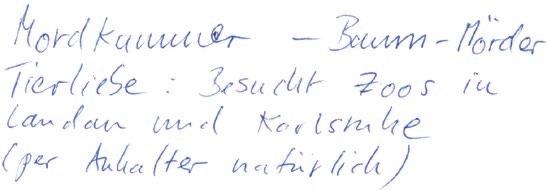 Mordkammer – Baum-Mörder
Tierliebe: Besucht Zoos in
Landau und Karlsruhe
(per Anhalter natürlich)